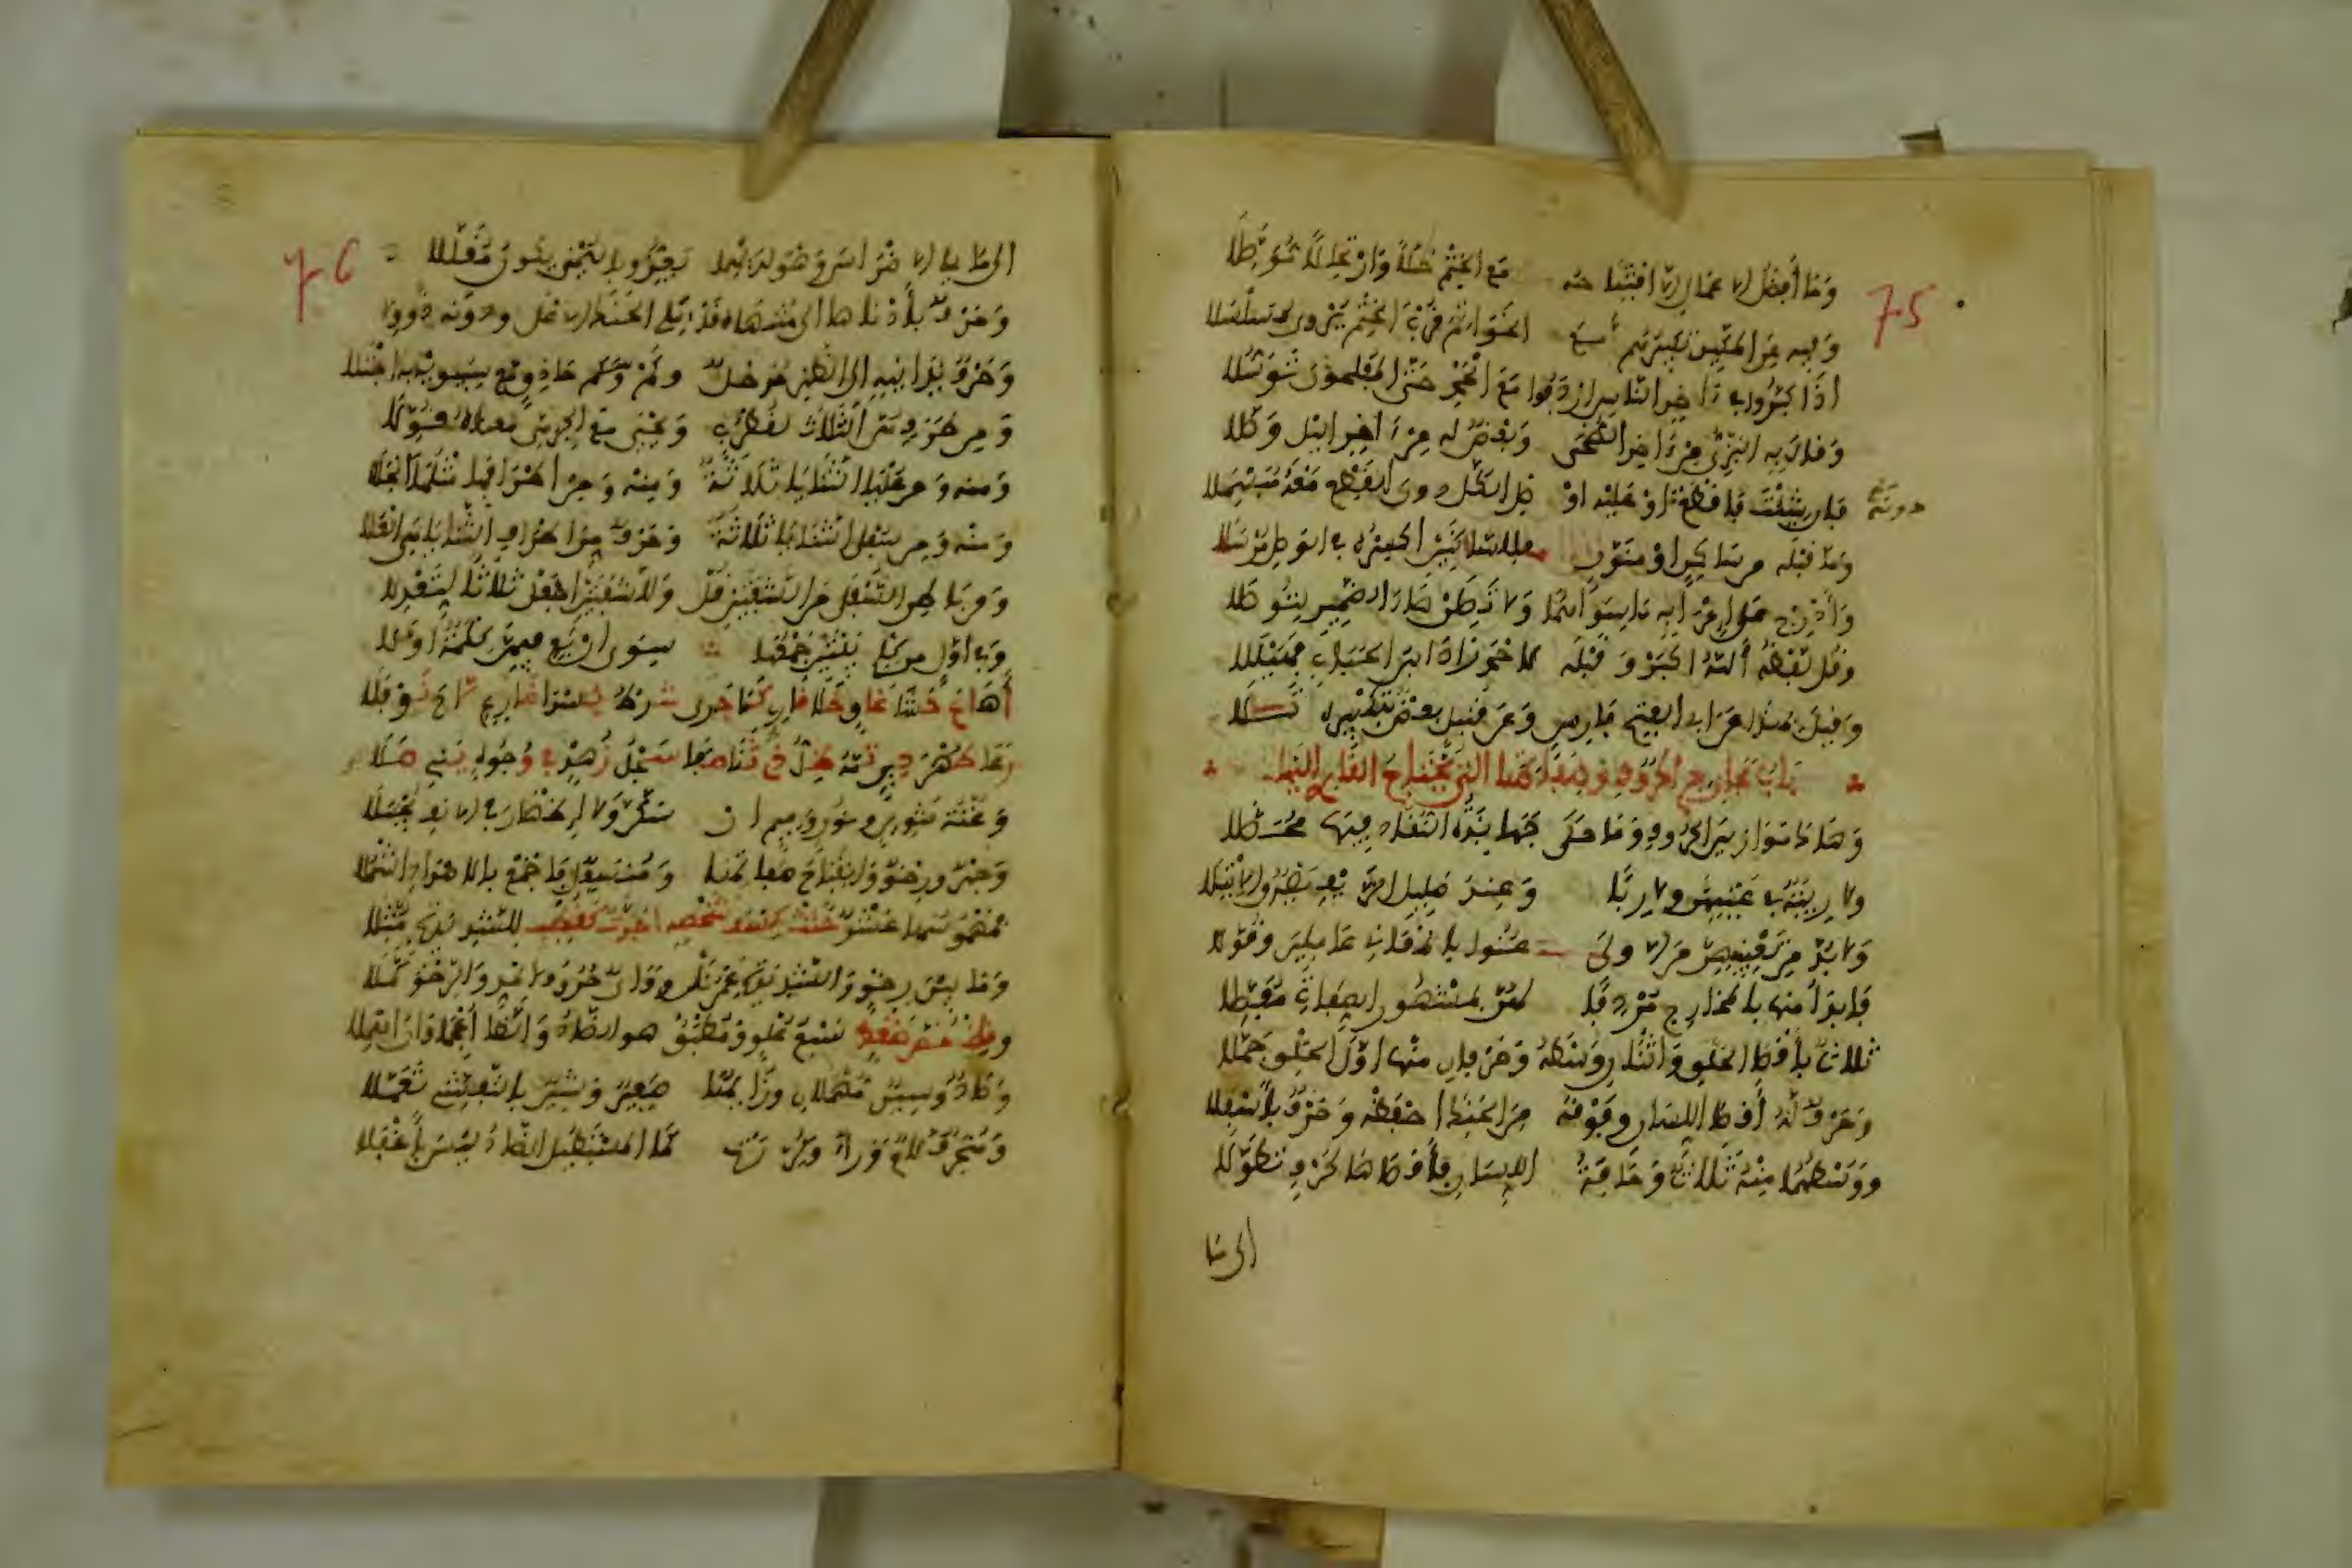 75
وما أفضل الاعمال الا افتتاحه مع الختم حلا وارتحالا موصلا
وفيه عن المكين تكبيرهم مع الخواتم قرب الختم يروى مسلسلا
اذا كبروا في ءاخر الناس اردفوا مع الحمد حتى المفلحون توسلا
وقال به البزي من ءاخر الضحى وبعض له من ءاخر اليل وصلا
فان شئت فاقطع او عليه او صل الكل دون القطع معه مبسملا
دونه
وما قبله من ساكن او منون فللساكنين اكسره في الوصل مرسلا
وأدرج على اعرابه ما سواهما ولا تصلن هاء الضمير لتوصلا
وقل لفظه ألله اكبر وقبله لاحمد زاد ابن الحباب فهيللا
وقيل بهذا عن ابي الفتح فارس وعن قنبل بعض بتكبيره تلا
باب مخارج الحروف وصفاتها التي يحتاج القارئ اليها
وهاك موازين الحروف وما حكى جهابذة النقاد فيها محصلا
ولا ريبة في عينهن ولا ربا وعند صليل الزيف يصدق الابتلا
ولا بد من تعيينهن من الاولى عنوا بالمعاني عاملين وقولا
فابدأ منها بالمخارج مردفا لهن بمشهور الصفات مفصلا
ثلاث بأقصى الحلق واثنان وسطه وحرفان منها اول الحلق جملا
وحرف له أقصى اللسان وفوقه من الحنك احفظه وحرف بأسفلا
ووسطهما منه ثلاث وحافة اللسان فأقصاها لحرف تطولا
الى ما
76
الى ما يلي الاضراس وهو لديهما يعز وباليمنى يكون مقللا
وحرف بأدناها الى منتهاه قد يلي الحنك الاعلى ودونه ذو ولا
وحرف يدانيه الى الظهر مدخل وكم حاذق مع سيبويه به اجتلا
ومن طرف هن الثلاث لقطرب ويحيى مع الجرمي معناه قولا
ومنه ومن عليا الثنايا ثلاثة ومنه ومن اطرافها مثلها انجلا
ومنه ومن بين الثنايا ثلاثة وحرف من اطراف الثنايا هي العلا
ومن باطن السفلى من الشفتين قل وللشفتين اجعل ثلاثا لتعدلا
وفي اول من كلم بيتين جمعها سوى اربع فيهن كلمة اولا
أهاع حشا غاو خلا قارئ كما جرى شرط يسرا ضارع لاح نوفلا
رعا طهر دين تمه ظل ذي ثنا صفا سجل زهد في وجوه بني ملا
وغنة تنوين ونون وميم ان سكن ولا اظهار في الانف يجتلا
وجهر ورخو وانفتاح صفاتها ومستفل فاجمع بالاضداد اشملا
فمهموسها عشر حثت كسف شخصه اجدت كقطب للشديدة مثلا
وما بين رخو والشديدة عمر نل وواي حروف المد والرخو كملا
وقظ خص ضغط سبع علو ومطبق هو الضاد والظا أعجما وان اهملا
وصاد وسين مهملان وزايها صفير وشين بالتفشي تعملا
ومنحرف لام وراء وكررت كما المستطيل الضاد ليس بأغفلا